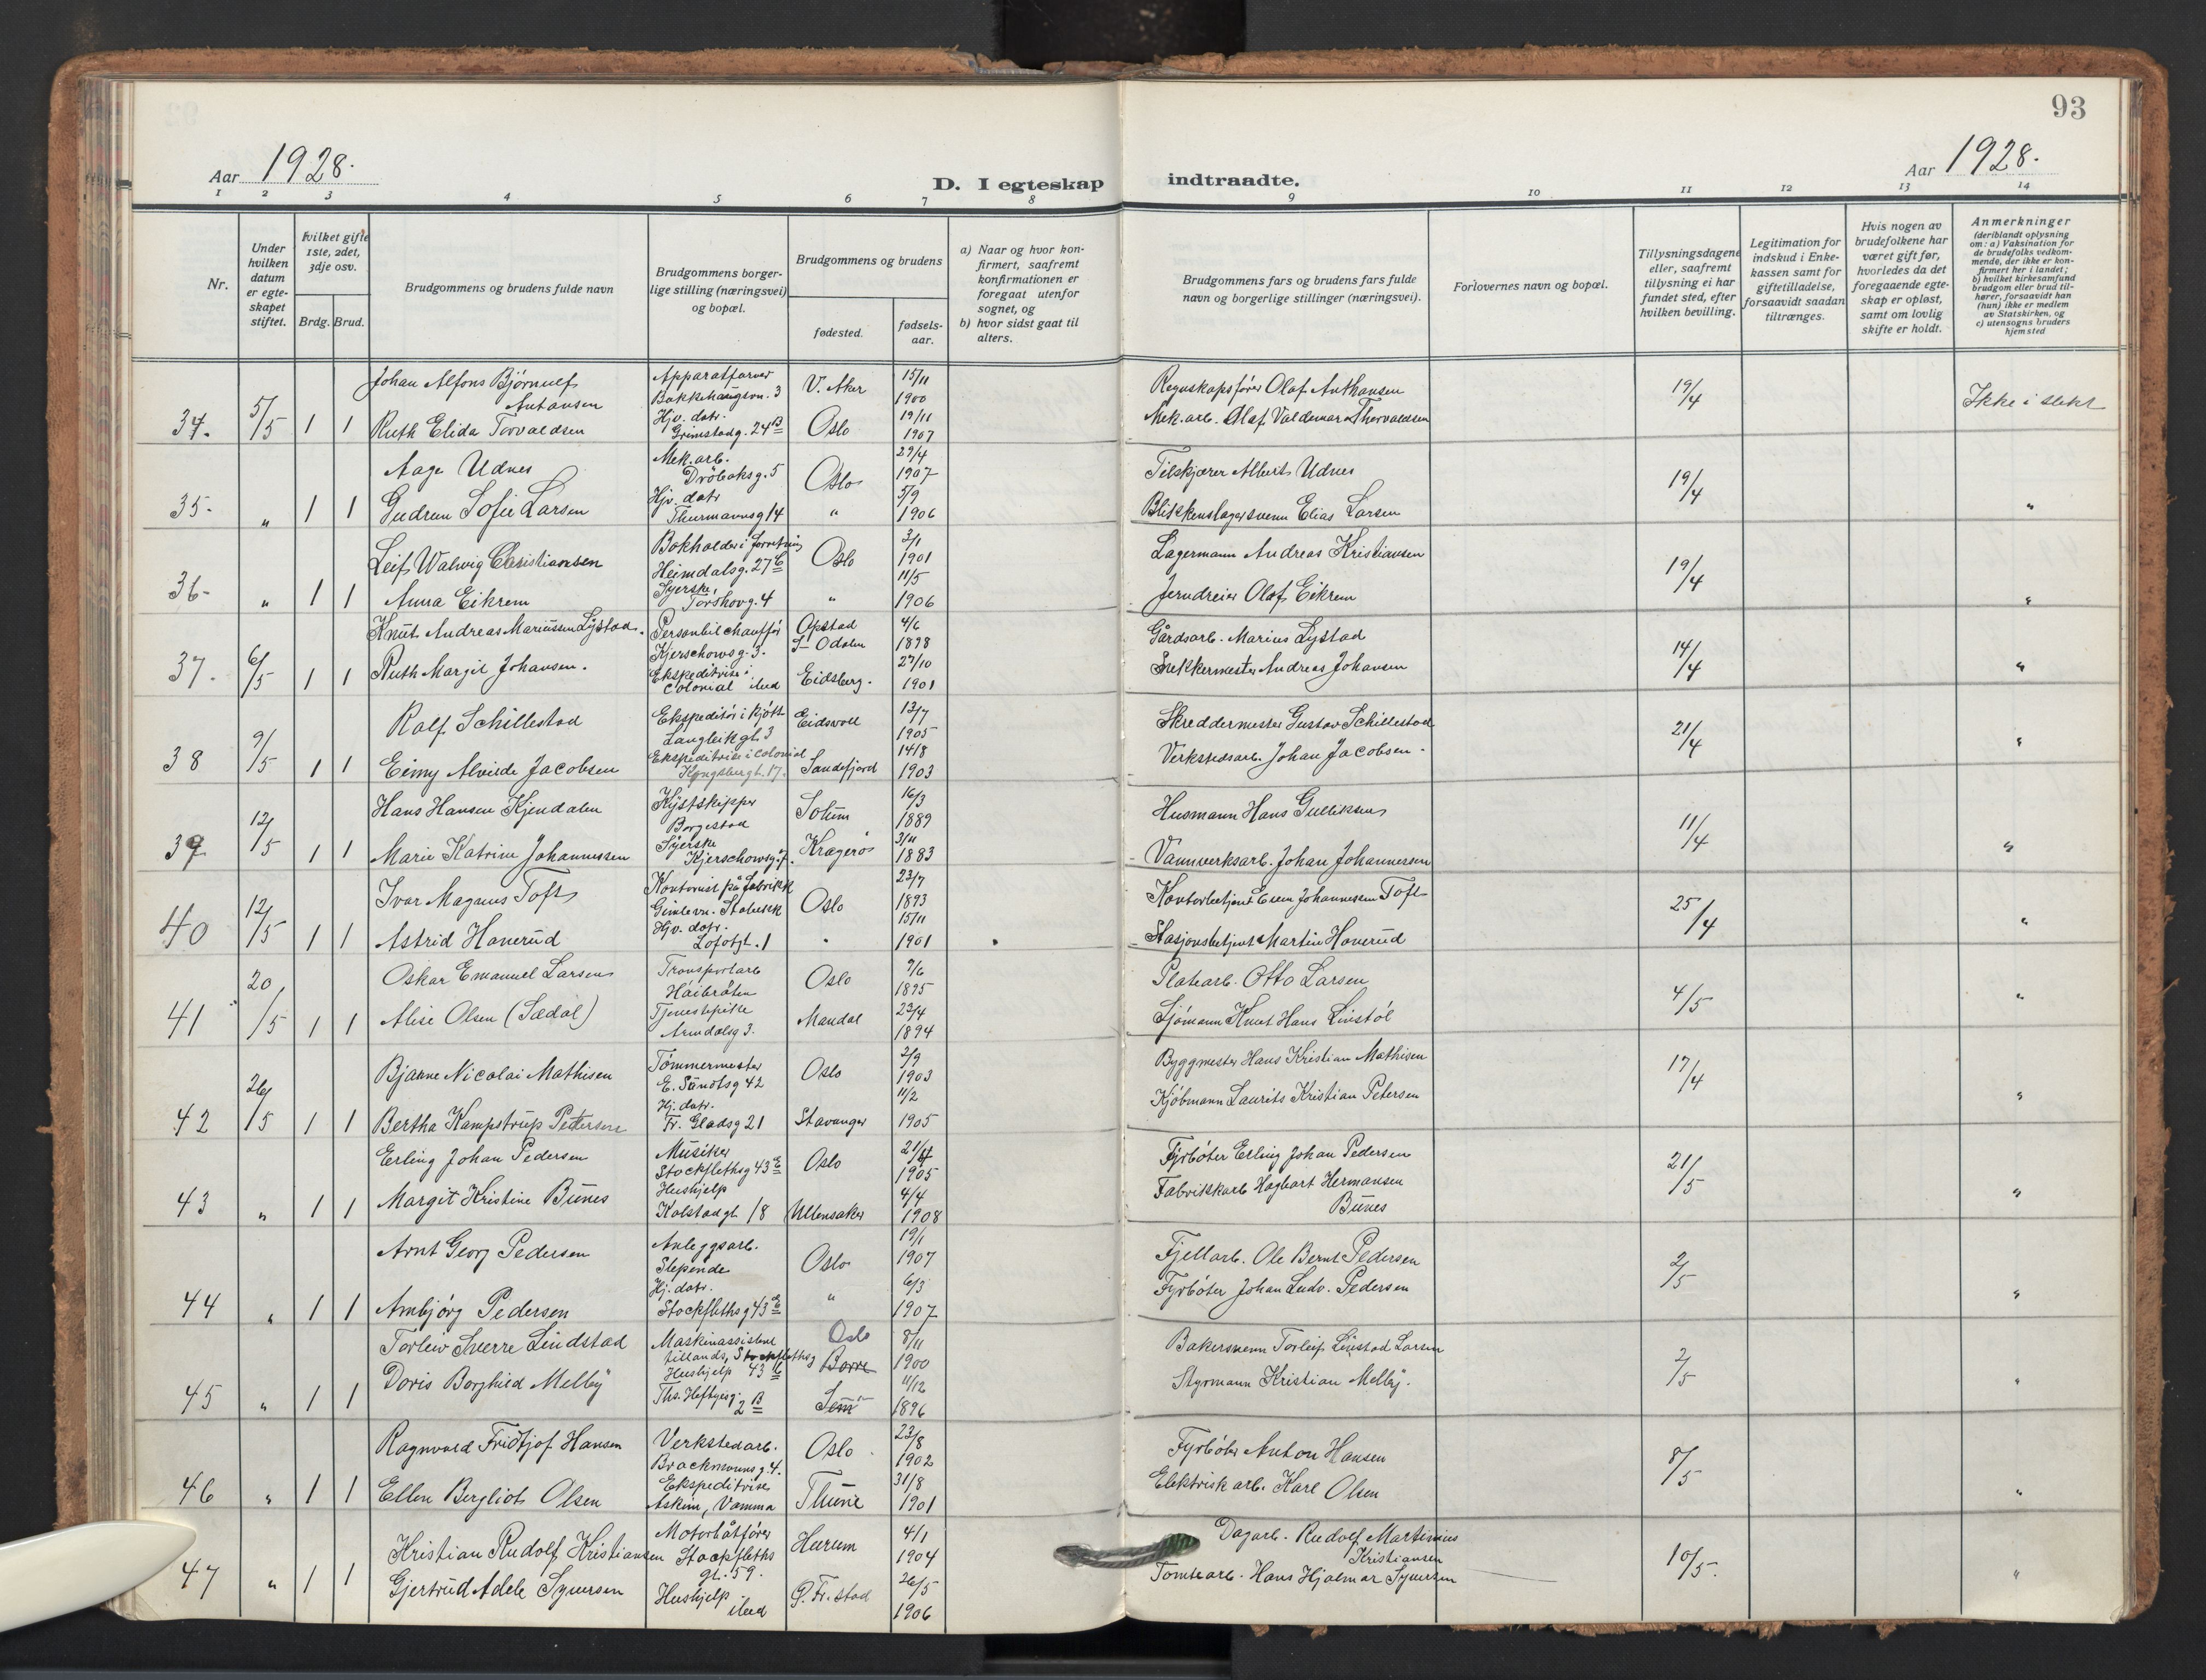 93
Aar 1928.
D. I egteskap indtraadte.
Aar 1928.
1 2 3 4 5 6 7 8 9 10 11 12 13 14
Nr.
Under hvilken datum er egte-skapet stiftet.
hvilket gifte 1ste, 2det, 3dje osv.
Brdg. Brud.
Brudgommens og brudens fulde navn
Brudgommens borger-lige stilling (næringsvei) og bopæl.
Brudgommens og brudens
fødested.
fødsels-aar.
a) Naar og hvor kon-firmert, saafremt konfirmationen er foregaat utenfor sognet, og
b) hvor sidst gaat til alters.
Brudgommens fars og brudens fars fulde navn og borgerlige stillinger (næringsvei).
Forlovernes navn og bopæl.
Tillysningsdagene eller, saafremt tillysning ei har fundet sted, efter hvilken bevilling.
Legitimation for indskud i Enke-kassen samt for giftetilladelse, forsaavidt saadan tiltrænges.
Hvis nogen av brudefolkene har været gift før, hvorledes da det foregaaende egte-skap er opløst, samt om lovlig skifte er holdt.
Anmerkninger (deriblandt oplysning om: a) Vaksination for de brudefolks vedkom-mende, der ikke er kon-firmert her i landet; b) hvilket kirkesamfund brudgom eller brud til-hører, forsaavidt han (hun) ikke er medlem av Statskirken, og c) utensogns bruders hjemsted
Johan Alfons Bjørnulf Antonsen Apparatfører Bakkehaugvn. 3 V. Aker 15/11 1900 Regnskapsfører Olaf Anthonsen
34. 5/5 1 1 Ruth Elida Torvaldsen Hjv. datr. Grimstadg. 24 B Oslo 19/11 1907 Mek. arb. Olaf Valdemar Thorvaldsen 19/4 Ikke i slekt
Aage Udnes Mek. arb. Drøbaksg. 5 Oslo 29/4 1907 Tilskjærer Albert Udnes
35. " 1 1 Gudrun Sofie Larsen Hjv. datr Thurmannsg 14 " 5/9 1906 Blikkenslagersvenn Elias Larsen 19/4 "
Leif Walvig Christiansen Bokholder i forretning Heimdalsg. 27 C Oslo 3/1 1901 Lagermann Andreas Kristiansen
36. " 1 1 Anna Eikrem Syerske, Torshovg. 4 " 11/5 1906 Jerndreier Olaf Eikrem 19/4 "
Knut Andreas Mariussen Lystad. Personbilchauffør Kjerschowsg. 3. Opstad S. Odalen 4/6 1898 Gårdsarb. Marius Lystad
37. 6/5 1 1 Ruth Margit Johansen. Ekspeditrise i Colonial ibid Eidsberg. 27/10 1901 Snekkermester Andreas Johansen 14/4 "
Rolf Schillestad Ekspeditør i kjøtt Langleikgt. 3 Eidsvoll 13/7 1905 Skreddermester Gustav Schillestad
38 9/5 1 1 Eimy Alvilde Jacobsen Ekspeditrise i Colonial Kongsberggt. 17. Sandefjord 14/8 1903 Verkstedsarb. Johan Jacobsen. 21/4 "
Hans Hansen Kjendalen Kystskipper Borgestad Solum 16/3 1889 Husmann Hans Gulliksen
39 12/5 1 1 Marie Katrine Johannessen Syerske Kjerschowsg. 7. Kragerø 3/11 1883 Vannverksarb. Johan Johannessen 11/4 "
Ivar Magnus Toft Kontorist på fabrikk Gimlevn. Stabekk Oslo 23/7 1893 Kontorbetjent Even Johannessen Toft
40 12/5 1 1 Astrid Hanerud Hjv. datr. Lofotgt. 1 " 15/11 1901 Stasjonsbetjent Martin Hanerud 25/4 "
Oskar Emanuel Larsen Transportarb Høibråten Oslo 9/6 1895 Platearb. Otto Larsen
41 20/5 1 1 Alise Olsen (Sædal) Tjenestepike Arendalsg 3. Mandal 23/4 1894 Sjømann Knut Hans Livstøl 4/5 "
Bjarne Nicolai Mathisen Tømmermester E. Sundtsg 42 Oslo 2/9 1903 Byggmester Hans Kristian Mathisen
42 26/5 1 1 Bertha Kampstrup Petersen Hj. datr. Fr. Gladsg 21 Stavanger 11/2 1905 Kjøbmann Laurits Kristian Petersen 17/4 "
Erling Johan Pedersen Musiker Stockflethsg 43 E Oslo 21/4 1905 Fyrbøter Erling Johan Pedersen
43 " 1 1 Margit Kristine Bunes Hushjelp Kolstadgt. 18 Ullensaker 4/4 1908 Fabrikkarb Hagbart Hermansen Bunes 21/5 "
Arnt Georg Pedersen Anleggsarb. Slepende Oslo 19/1 1907 Fjellarb. Ole Bernt Pedersen
44 " 1 1 Ambjørg Pedersen Hj. datr. Stockflethsg 43 E " 6/3 1907 Fyrbøter Johan Ludv. Pedersen 2/5 "
Torleiv Sverre Lindstad Maskinassistent tillands, Stockflethsg 43 Oslo Borre 8/11 1900 Bakersvenn Torleif Linstad Larsen
45 " 1 1 Doris Borghild Melby Hushjelp Ths. Heftyesg. 2 B Sem 11/12 1896 Styrmann Kristian Melby. 2/5 "
Ragnvald Fridtjof Hansen Verkstedarb. Brochmannsg. 4. Oslo 23/8 1902 Fyrbøter Anton Hansen
46 " 1 1 Ellen Bergliot Olsen Ekspeditrise Askim, Vamma Thune 31/8 1901 Elektrisk arb. Karl Olsen 8/5 "
Kristian Rudolf Kristiansen Motorbåtfører Stockfleths gt. 59. Hurum 4/1 1904 Dagarb. Rudolf Martinius Kristiansen
47 " 1 1 Gjertrud Adele Syversen Hushjelp ibid G. Fr. stad 26/5 1906 Tomtearb. Hans Hjalmar Syversen 10/5. "